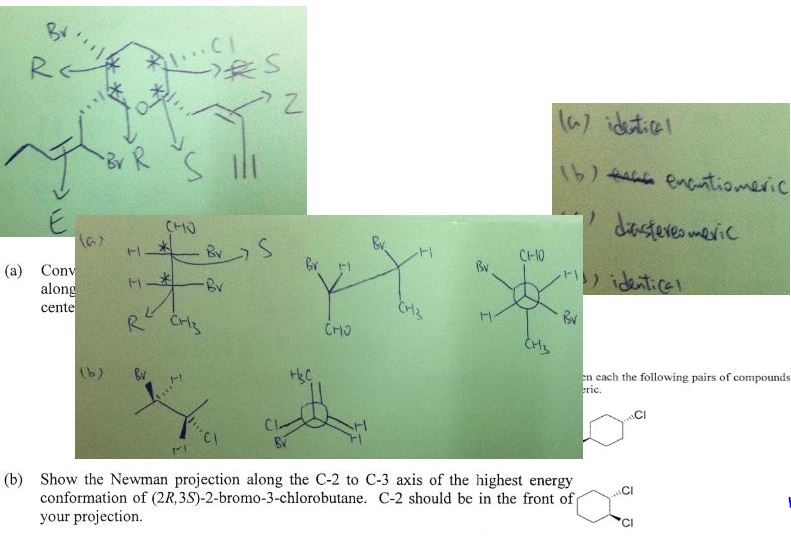 Br
Cl
R
S
Z
O
Br R
S
E
(a) identical
(b) enantiomeric
diastereomeric
) identical
(a)
CHO
H
Br
S
H
Br
R
CH3
Br
H
Br
H
CHO
CH3
CHO
Br
H
H
Br
CH3
(a) Conv
along
cente
(b)
Br
H
H
Cl
H3C
Cl
H
Br
H
en each the following pairs of compounds
eric.
Cl
(b) Show the Newman projection along the C-2 to C-3 axis of the highest energy
conformation of (2R,3S)-2-bromo-3-chlorobutane. C-2 should be in the front of
your projection.
Cl
Cl